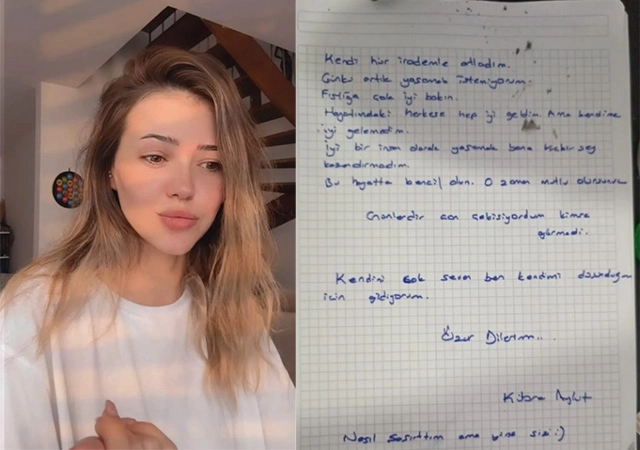 Kendi hür irademle atladım.
Çünkü artık yaşamak istemiyorum.
Fıstığa çok iyi bakın.
Hayatımdaki herkese hep iyi geldim. Ama kendime
iyi gelemedim.
iyi bir insan olarak yaşamak bana hiçbir şey
kazandırmadım.
Bu hayatta bencil olun. O zaman mutlu olursunuz
Günlerdir can çekişiyordum kimse
görmedi.
Kendimi çok seven ben kendimi düşündüğüm
için gidiyorum.
Özür Dilerim...
Kübra Aykut
Nasıl şaşırttım ama yine sizi :)